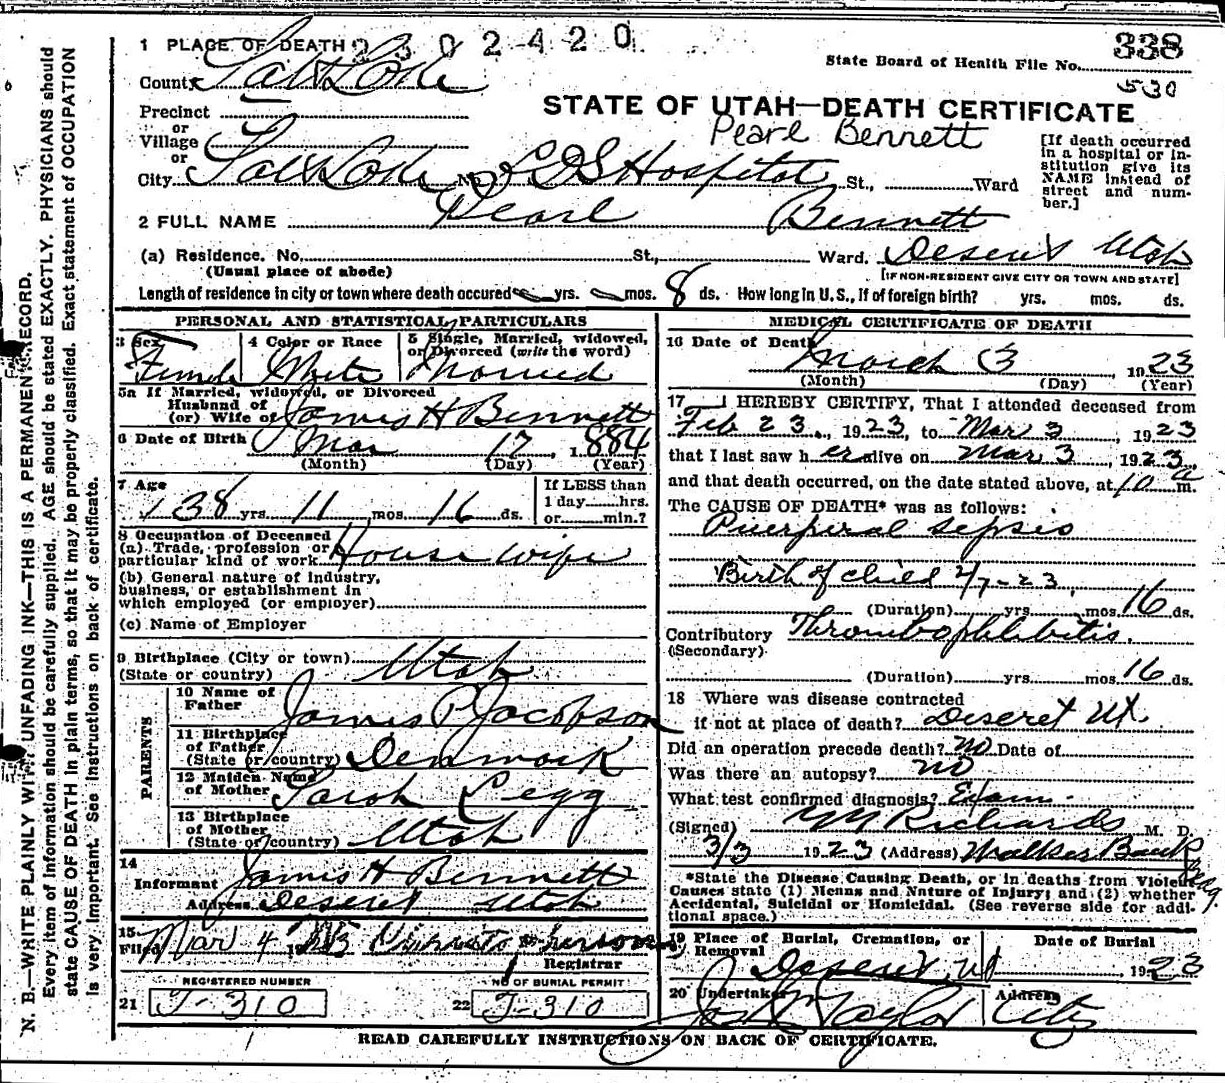 1 PLACE OF DEATH 2 3 0 2 4 2 0
338
State Board of Health File No.
530
County Salt Lake
STATE OF UTAH—DEATH CERTIFICATE
Precinct
or
Village
or
Pearl Bennett
City Salt Lake No. LDS Hospital St., Ward
[If death occurred
in a hospital or in-
stitution give its
NAME instead of
street and num-
ber.]
2 FULL NAME Pearl Bennett
(a) Residence. No. St., Ward. Deseret Utah
(Usual place of abode) [IF NON-RESIDENT GIVE CITY OR TOWN AND STATE]
Length of residence in city or town where death occured yrs. mos. 8 ds. How long in U. S., if of foreign birth? yrs. mos. ds.
PERSONAL AND STATISTICAL PARTICULARS
3 Sex 4 Color or Race 5 Single, Married, widowed,
or Divorced (write the word)
Female White Married
5a If Married, widowed, or Divorced
Husband of
(or) Wife of James H Bennett
6 Date of Birth Mar 17, 1884
(Month) (Day) (Year)
7 Age
38 yrs. 11 mos. 16 ds.
If LESS than
1 day hrs.
or min.?
8 Occupation of Deceased
(a) Trade, profession or
particular kind of work House wife
(b) General nature of industry,
business, or establishment in
which employed (or employer)
(c) Name of Employer
9 Birthplace (City or town)
(State or country) Utah
PARENTS
10 Name of
Father James P Jacobson
11 Birthplace
of Father
(State or country) Denmark
12 Maiden Name
of Mother Sarah Pegg
13 Birthplace
of Mother
(State or country) Utah
14
Informant James H Bennett
Address Deseret Utah
15
Filed Mar 4, 1923
Registrar
REGISTERED NUMBER NO OF BURIAL PERMIT
21 J-310 22 J-310
MEDICAL CERTIFICATE OF DEATH
16 Date of Death
March 3 1923
(Month) (Day) (Year)
17 I HEREBY CERTIFY, That I attended deceased from
Feb 23, 1923, to Mar 3, 1923
that I last saw her alive on Mar 3, 1923
and that death occurred, on the date stated above, at 10 a m.
The CAUSE OF DEATH* was as follows:
Puerperal sepsis
Birth of child 2/7-23
(Duration) yrs. mos. 16 ds.
Contributory Thrombophlebitis.
(Secondary)
(Duration) yrs. mos. 16 ds.
18 Where was disease contracted
if not at place of death? Deseret Ut.
Did an operation precede death? no Date of
Was there an autopsy? no
What test confirmed diagnosis? Exam.
(Signed) Richards M. D.
3/3 1923 (Address) Walker Bank Bldg.
*State the Disease Causing Death, or in deaths from Violent
Causes state (1) Means and Nature of Injury; and (2) whether
Accidental, Suicidal or Homicidal. (See reverse side for addi-
tional space.)
19 Place of Burial, Cremation, or
Removal Date of Burial
Deseret, Ut 1923
20 Undertaker Address
Taylor City
READ CAREFULLY INSTRUCTIONS ON BACK OF CERTIFICATE.
N. B.—WRITE PLAINLY WITH UNFADING INK—THIS IS A PERMANENT RECORD.
Every item of information should be carefully supplied. AGE should be stated EXACTLY. PHYSICIANS should
state CAUSE OF DEATH in plain terms, so that it may be properly classified. Exact statement of OCCUPATION
is very important. See instructions on back of certificate.